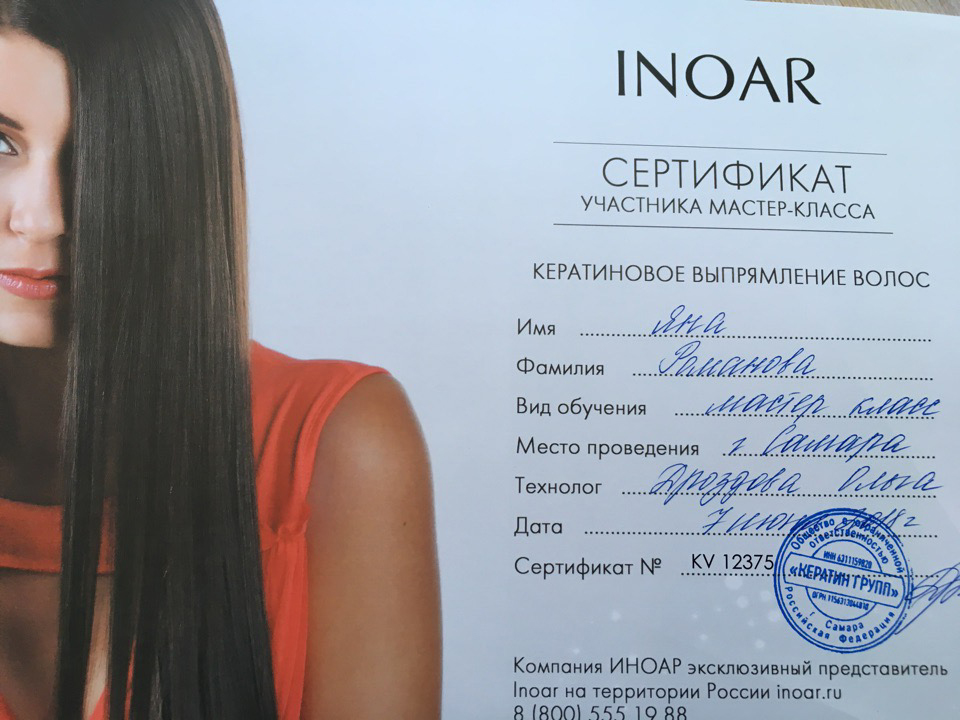 INOAR
СЕРТИФИКАТ
УЧАСТНИКА МАСТЕР-КЛАССА
КЕРАТИНОВОЕ ВЫПРЯМЛЕНИЕ ВОЛОС
Имя Яна
Фамилия Романова
Вид обучения мастер класс
Место проведения г Самара
Технолог Дроздова Ольга
Дата 7 июня 2018 г
Сертификат № KV 12375
Общество с ограниченной
ответственностью
ИНН 6311159820
«КЕРАТИН ГРУПП»
г. Самара
Российская Федерация
Компания ИНОАР эксклюзивный представитель
Inoar на территории России inoar.ru
8 (800) 555 19 88